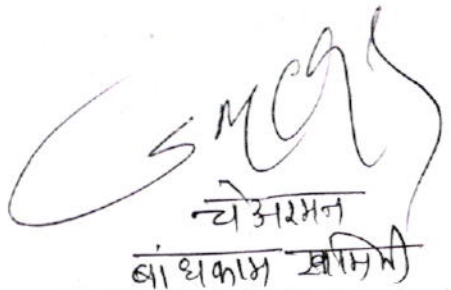 चेअरमन
बांधकाम समिती